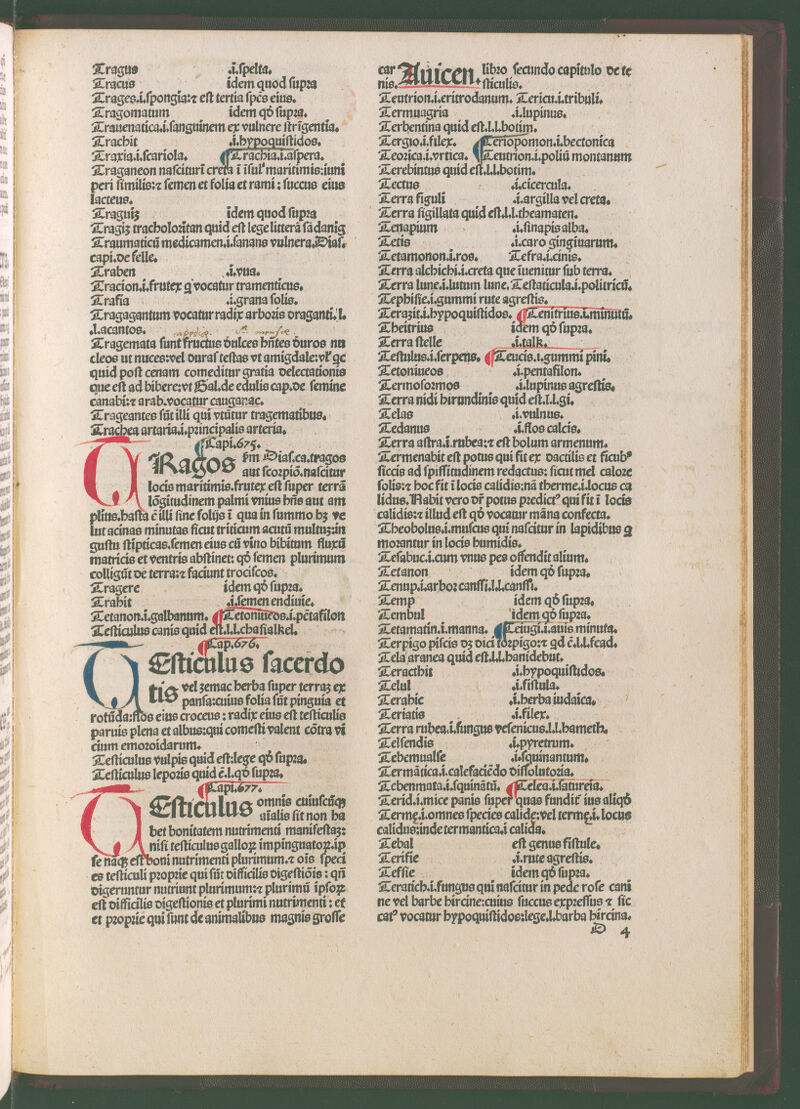 Tragus .i.spelta.
Tracus idem quod supra
Trages.i.spongia:⁊ est tertia spēs eius.
Tragomatum idem qđ supra.
Trauenatica.i.sanguinem ex vulnere strīgentia.
Trachit .i.hypoquistidos.
Traxia.i.scariola. ¶Trachia.i.aspera.
Traganeon nasciturī creta ī īsul' maritimis:iuni
peri similis:⁊ semen et folia et rami : succus eius
lacteus.
Traguiz idem quod supra
Tragiz tracholozītan quid est lege litterā sādanig
Traumaticū medicamen.i.sanans vulnera.Dias.
capi.de felle.
Traben .i.vua.
Tracion.i.frutex q̄ vocatur tramenticus.
Trafia .i.grana solis.
Tragagantum vocatur radix arboris draganti.l.
.l.acantos.
Tragemata sunt fructus dulces hn̄tes duros nu
cleos ut nuces:vel duras testas vt amigdale:vl' qc
quid post cenam comeditur gratia delectationis
que est ad bibere:vt Gal.de edulis cap.de semine
canabi:⁊ arab.vocatur cauganac.
Trageantes sūt illi qui vtūtur tragematibus.
Trachea artaria.i.principalis arteria.
¶Capi.675.
TRagos s̄m Dias.ca.tragos
aut scorpiō.nascitur
locis maritimis.frutex est super terrā
lōgitudinem palmi vnius hn̄s aut am
plius.hasta ē illi sine folijs ī qua in summo hȝ ve
lut acinas minutas sicut triticum acutū multuȝ:in
gustu stipticas.semen eius cū vino bibitum fluxū
matricis et ventris abstinet: qđ semen plurimum
colligūt de terra:⁊ faciunt trociscos.
Tragere idem qđ supra.
Trahit .i.semen endiuie.
Tetanon.i.galbanum. ¶Tetoniueos.i.pētafilon
Testiculus canis quid est.l.l.chasialkel.
¶Cap.676.
TEsticulus sacerdo
tis vel zemac herba super terraȝ ex
pansa:cuius folia sūt pinguia et
rotūda:flos eius croceus : radix eius est testiculis
paruis plena et albus:qui comesti valent cōtra vi
cium emoroidarum.
Testiculus vulpis quid est:lege qđ supra.
Testiculus leporis quid ē.l.qđ supra.
¶Capi.677.
TEsticulus omnis cuiuscūqȝ
aīalis sit non ha
bet bonitatem nutrimenti manifestaȝ:
nisi testiculus galloꝝ impinguatoꝝ.ip
se nāqȝ est boni nutrimenti plurimum.⁊ oīs speci
es testiculi proprie qui sūt difficilis digestiōis : qn̄
digeruntur nutriunt plurimum:⁊ plurimū ipsoꝝ
est difficilis digestionis et plurimi nutrimenti : et
et proprie qui sunt de animalibus magnis grosse
car Auicen. libro secundo capitulo de te
nis. sticulis.
Teutrion.i.eritrodanum. Tericu.i.tribuli.
Termuagria .i.lupinus.
Terbentina quid est.l.l.botim.
Tergio.i.filex. ¶Teriopomon.i.bectonica
Teozica.i.vrtica. ¶Teutrion.i.poliū montanum
Terebintus quid est.l.l.botim.
Tectus .i.cicercula.
Terra figuli .i.argilla vel creta.
Terra sigillata quid est.l.l.theamaten.
Tenapium .i.sinapis alba.
Tetis .i.caro gingiuarum.
Tetamonon.i.ros. Tefra.i.cinis.
Terra alchichi.i.creta que iuenitur sub terra.
Terra lune.i.lutum lune. Testaticula.i.politricū.
Tephisie.i.gummi rute agrestis.
Terazit.i.hypoquistidos. ¶Tenitrius.i.minutū.
Theitrius idem qđ supra.
Terra stelle .i.talk.
Testulus.i.serpens. ¶Teucis.i.gummi pini.
Tetoniueos .i.pentafilon.
Termosomos .i.lupinus agrestis.
Terra nidi hirundinis quid est.l.l.gi.
Telas .i.vulnus.
Tedanus .i.flos calcis.
Terra astra.i.rubea:⁊ est bolum armenum.
Termenabit est potus qui fit ex dactilis et ficub⁹
siccis ad spissitudinem redactus: sicut mel calore
solis:⁊ hoc fit ī locis calidis:nā therme.i.locus ca
lidus.Nabit vero dr̄ potus predict⁹ qui fit ī locis
calidis:⁊ illud est qđ vocatur māna confecta.
Theobolus.i.muscus qui nascitur in lapidibus q
morantur in locis humidis.
Tesabuc.i.cum vnus pes offendit alium.
Tetanon idem qđ supra.
Tenup.i.arbor canssi.l.l.canssi.
Temp idem qđ supra.
Tembul idem qđ supra.
Tetamatin.i.manna. ¶Teiugi.i.auis minuta.
Terpigo piscis dȝ dici torpigo:⁊ qd ē.l.l.fead.
Tela aranea quid est.l.l.hanidebut.
Teracthit .i.hypoquistidos.
Telul .i.fistula.
Terahic .i.herba iudaica.
Teriatis .i.filex.
Terra rubea.i.fungus vesenicus.l.l.hameth.
Telsendis .i.pyretrum.
Tebemualse .i.squinantum.
Termātica.i.calefaciēdo dissolutoria.
Tchenmata.i.squinātū. ¶Telea.i.satureia.
Terid.i.mice panis super quas fundit̄ ius aliqđ
Terme.i.omnes species calide:vel terme.i. locus
calidus:inde termantica.i calida.
Tebal est genus fistule.
Terifie .i.rute agrestis.
Teffie idem qđ supra.
Teratich.i.fungus qui nascitur in pede rose cani
ne vel barbe hircine:cuius succus expressus ⁊ sic
cat⁹ vocatur hypoquistidos:lege.l.barba hircina.
D 4